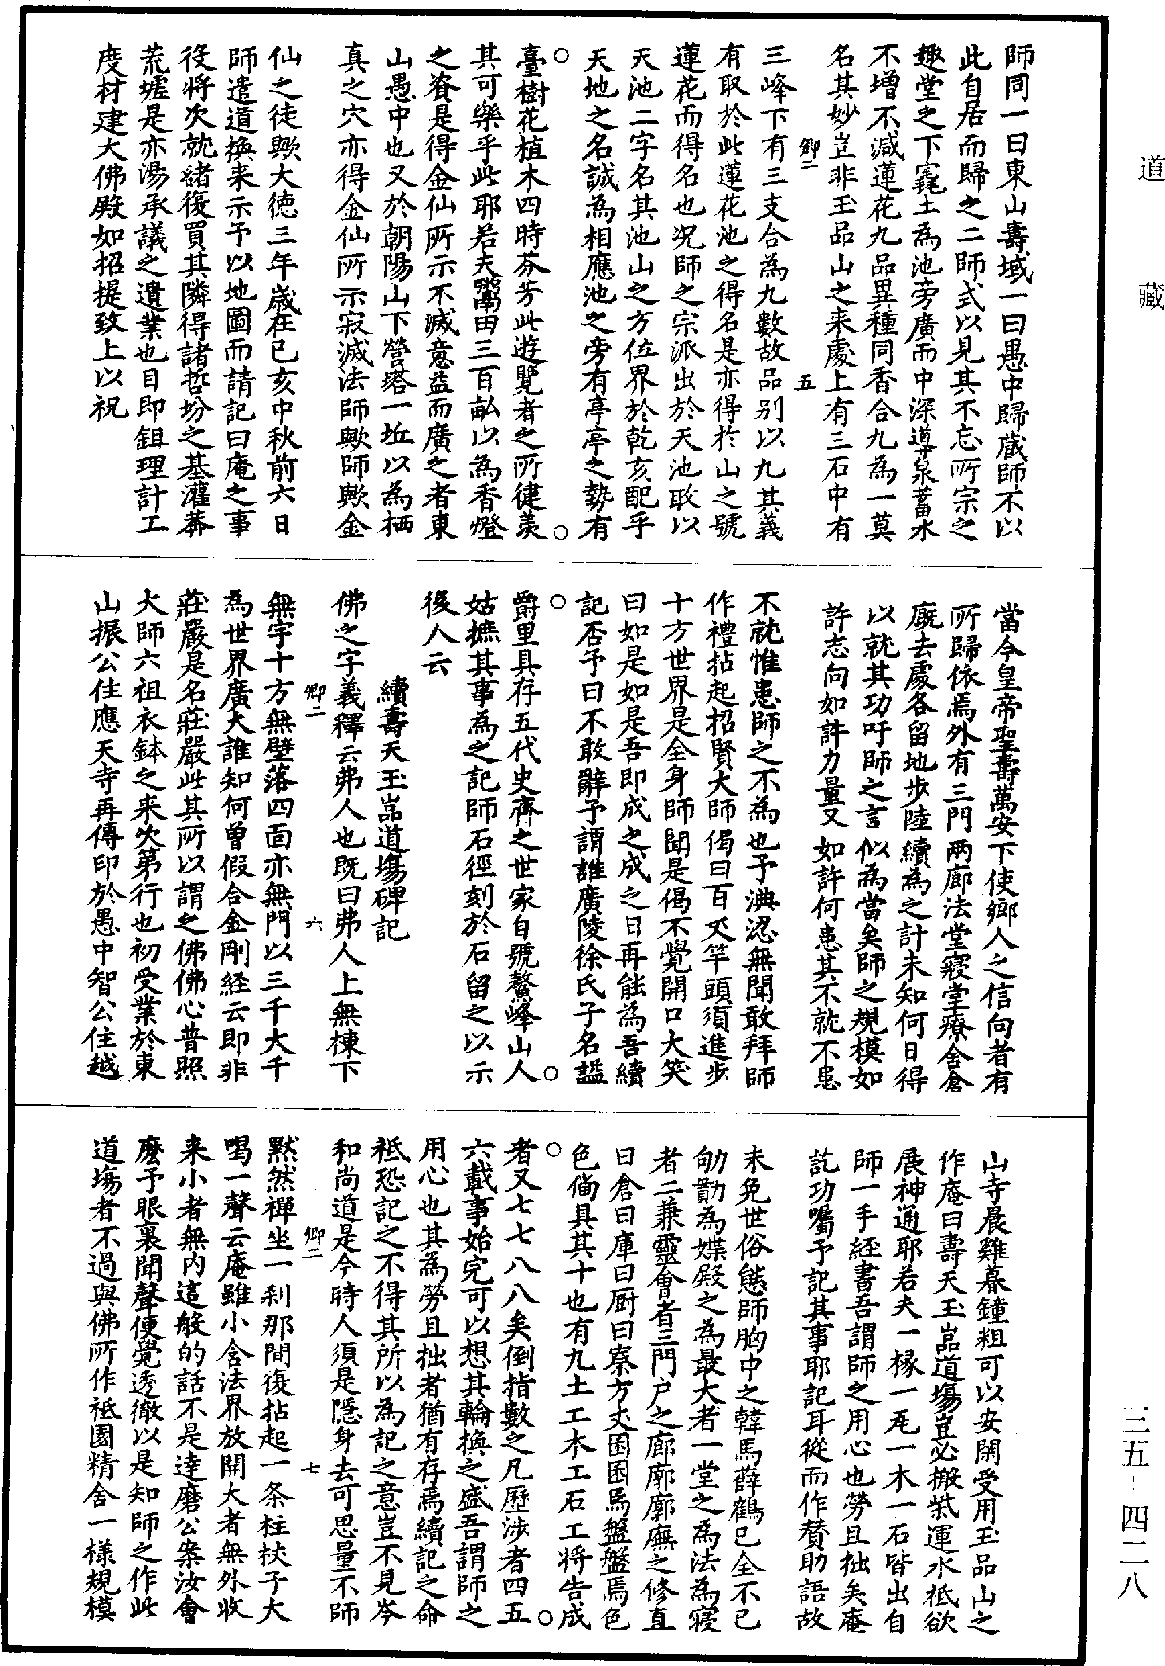 道藏
三五-四二八
師同一曰東山壽域一曰愚中歸藏師不以
此自居而歸之二師式以見其不忘所宗之
趣堂之下窪土為池旁廣而中深導泉蓄水
不增不減蓮花九品異種同香合九為一莫
名其妙豈非玉品山之来處上有三石中有
卿二 五
三峰下有三支合為九數故品别以九其義
有取於此蓮花池之得名是亦得於山之號
蓮花而得名也况師之宗派出於天池取以
天池二字名其池山之方位界於乾亥配乎
天地之名誠為相應池之旁有亭亭之勢有
臺樹花植木四時芬芳此遊覽者之所健羨
其可樂乎此耶若夫鬻田三百畝以為香燈
之資是得金仙所示不滅意益而廣之者東
山愚中也又於朝陽山下營塔一坵以為栖
真之穴亦得金仙所示寂滅法師歟師歟金
仙之徒歟大徳三年歲在己亥中秋前六日
師遣道換来示予以地圖而請記曰庵之事
役將次就緒復買其隣得諸哲坊之基灌莽
荒墟是亦湯承議之遺業也目即鉏理計工
度材建大佛殿如招提致上以祝
當今皇帝聖壽萬安下使鄉人之信向者有
所歸依焉外有三門兩廊法堂寢堂療舍倉
廐去處各留地步陸續為之計未知何日得
以就其功吁師之言似為當矣師之規模如
許志向如許力量又如許何患其不就不患
不就惟患師之不為也予淟涊無聞敢拜師
作禮拈起招賢大師偈曰百丈竿頭須進步
十方世界是全身師聞是偈不覺開口大笑
曰如是如是吾即成之成之日再能為吾續
記否予曰不敢辭予謂誰廣陵徐氏子名謐
爵里具存五代史齊之世家自號鼇峰山人
姑摭其事為之記師石徑刻於石留之以示
後人云
續壽天玉品道塲碑記
佛之字義釋云弗人也既曰弗人上無棟下
卿二 六
無宇十方無壁落四面亦無門以三千大千
為世界廣大誰知何曾假合金剛経云即非
莊嚴是名莊嚴此其所以謂之佛佛心普照
大師六祖衣鉢之来次第行也初受業於東
山振公住應天寺再傳印於愚中智公住越
山寺晨雞暮鐘粗可以安閑受用玉品山之
作庵曰壽天玉品道塲豈必搬柴運水祗欲
展神通耶若夫一椽一瓦一木一石皆出自
師一手経書吾謂師之用心也勞且拙矣庵
訖功囑予記其事耶記耳從而作賛助語故
未免世俗態師胸中之韓馬薛鶴已全不已
劬勤為媒殿之為最大者一堂之為法為寢
者二兼靈會者三門户之廊廓廓廡之修直
曰倉曰庫曰厨曰寮方丈囷囷焉盤盤焉色
色偹具其十也有九土工木工石工將告成
者又七七八八矣倒指數之凡歷涉者四五
六載事始完可以想其輪換之盛吾謂師之
用心也其為勞且拙者猶有存焉續記之命
祗恐記之不得其所以為記之意豈不見岑
和尚道是今時人須是隱身去可思量不師
卿二 七
黙然禪坐一刹那間復拈起一条柱杖子大
喝一聲云庵雖小含法界放開大者無外收
来小者無内這般的話不是達磨公案汝會
麽予眼裏聞聲便覺透徹以是知師之作此
道塲者不過與佛所作祗園精舍一様規模